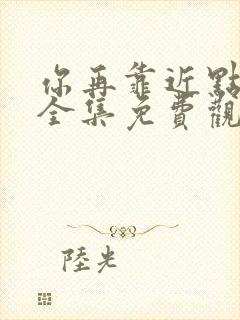 你再靠近點
全集免費觀
陸光